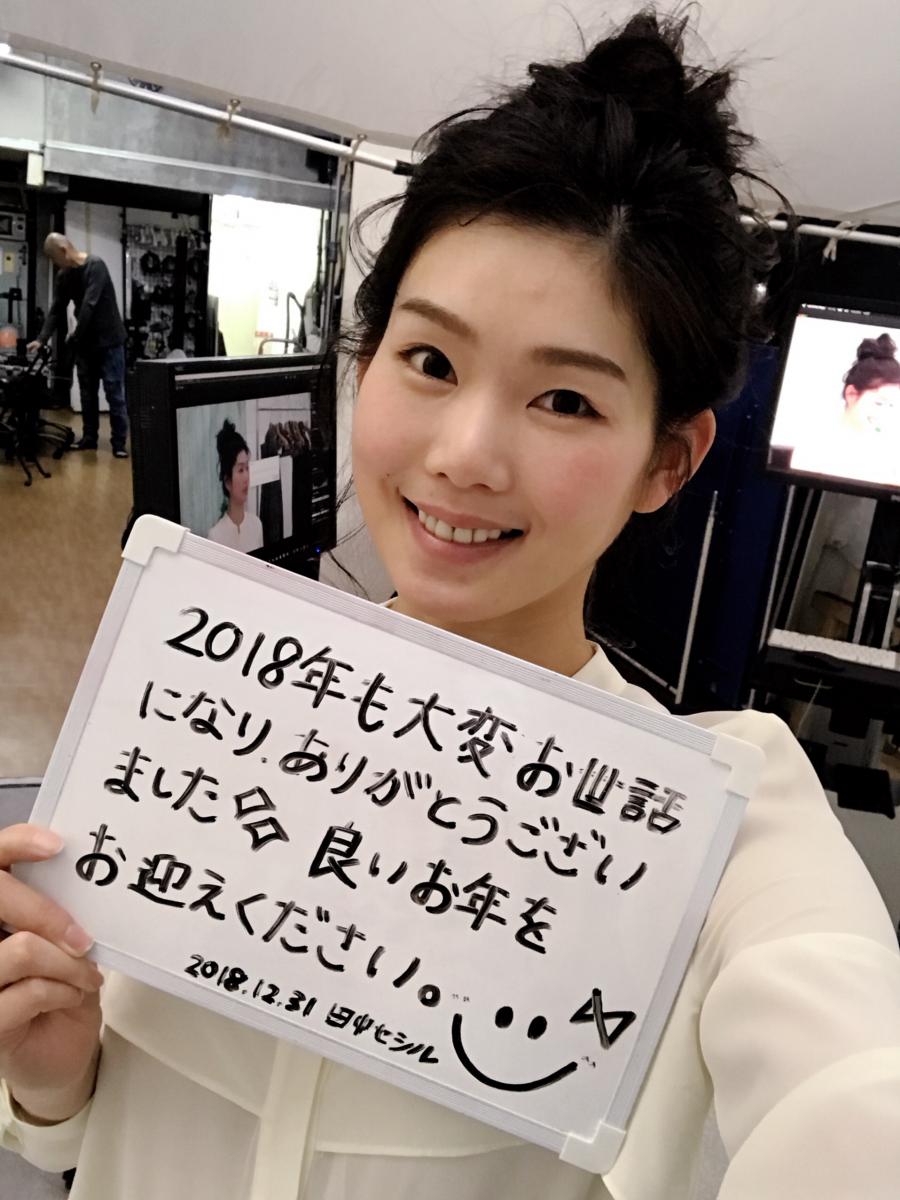 2018年も大変お世話
になり、ありがとうござい
ました 良いお年を
お迎えください。
2018.12.31 田中セシル